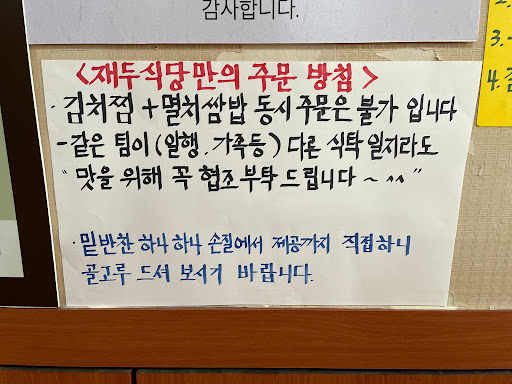 감사합니다.
<재두식당만의 주문 방침>
· 김치찜 + 멸치쌈밥 동시 주문은 불가 입니다
- 같은 팀이 (일행. 가족등) 다른 식탁 일지라도
" 맛을 위해 꼭 협조부탁 드립니다 ~ ^^ "
· 밑반찬 하나하나 손질에서 제공까지 직접하니
골고루 드셔 보시기 바랍니다.
2.
3.
4.